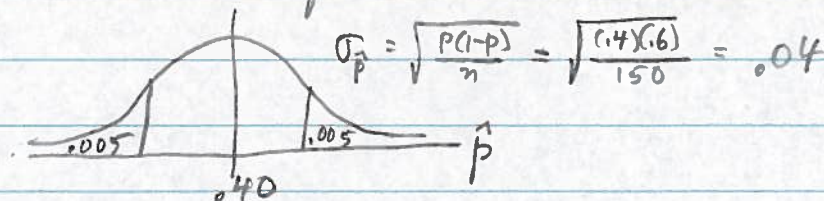 σp̂ = √(p(1-p)/n) = √((.4)(.6)/150) = .04
.005 .005 p̂
.40